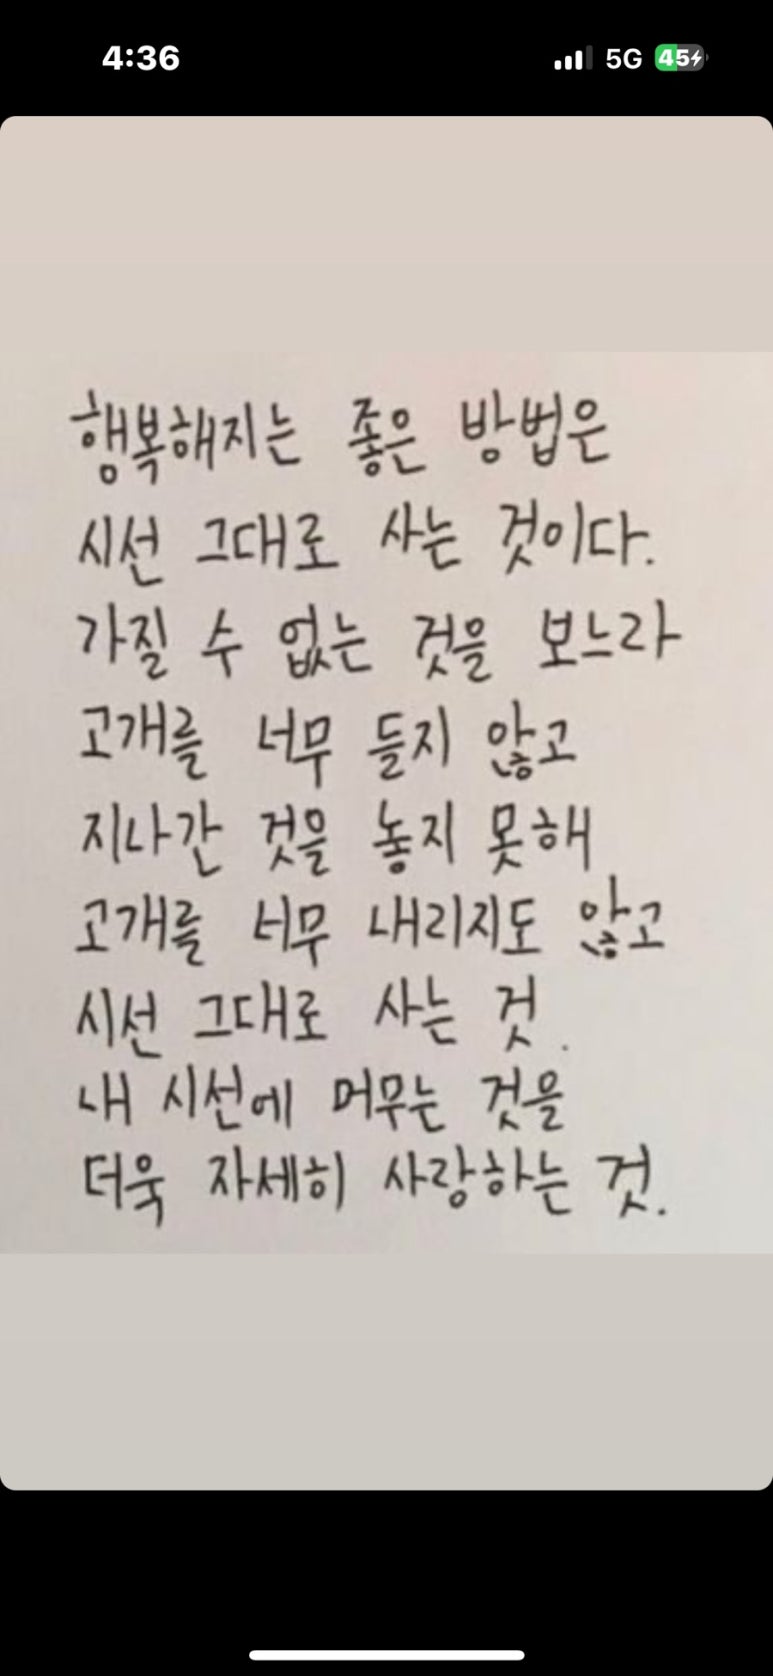 4:36
5G 45
행복해지는 좋은 방법은
시선 그대로 사는 것이다.
가질 수 없는 것을 보느라
고개를 너무 들지 않고
지나간 것을 놓지 못해
고개를 너무 내리지도 않고
시선 그대로 사는 것.
내 시선에 머무는 것을
더욱 자세히 사랑하는 것.